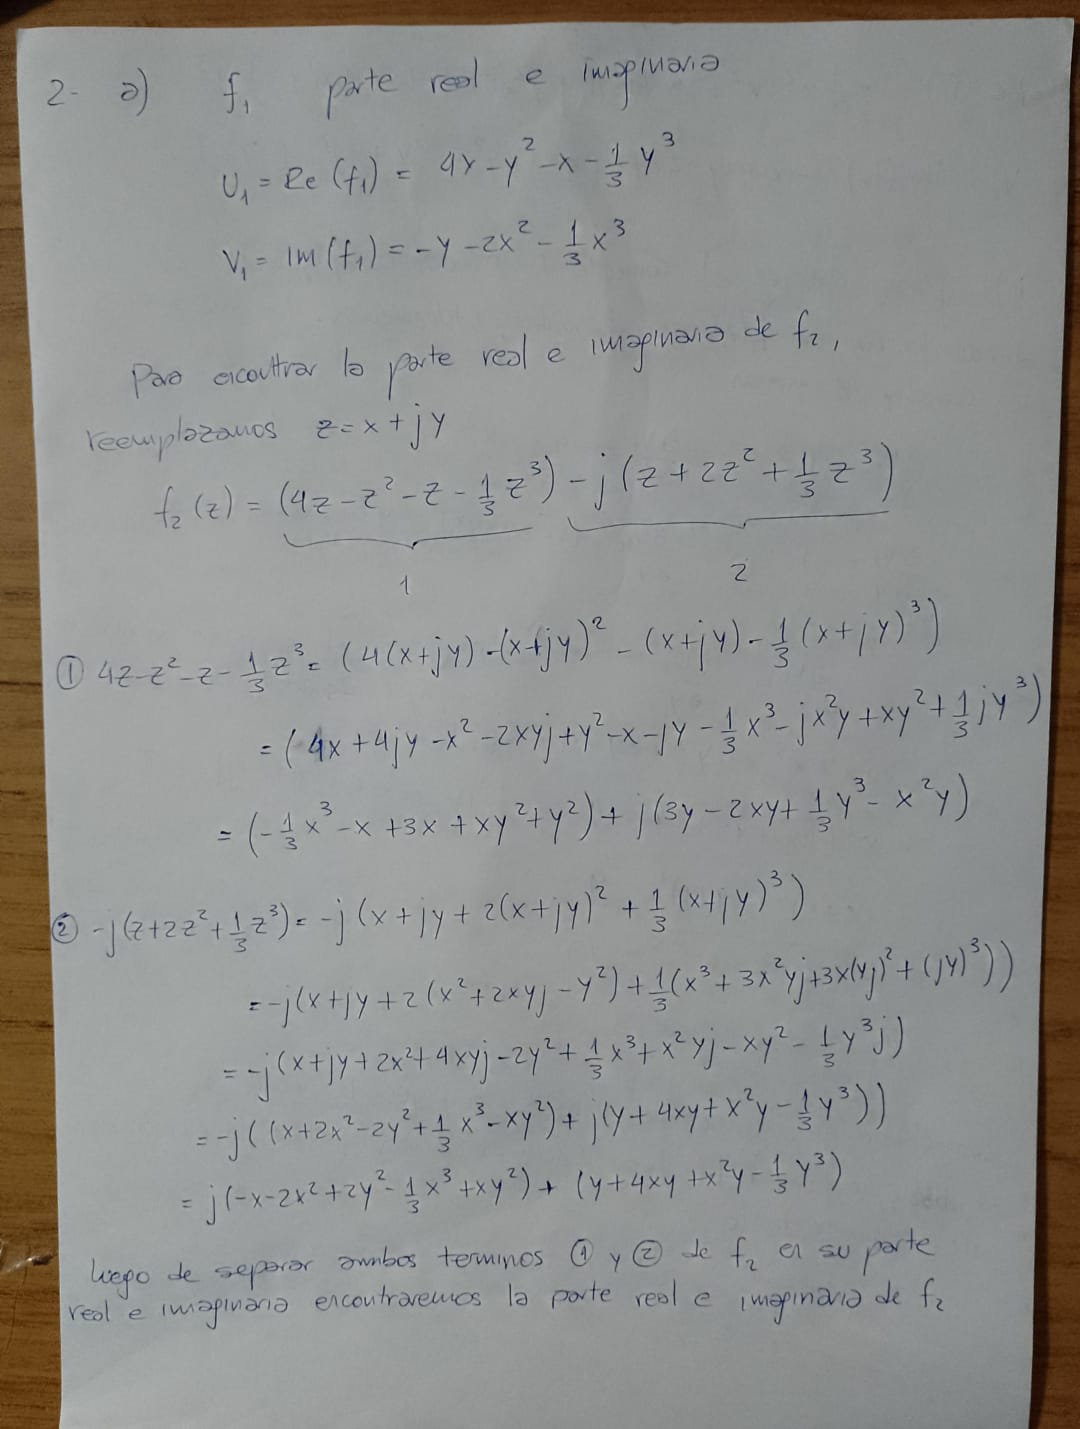 2- a) f₁ parte real e imaginaria
U₁ = Re (f₁) = 4x - y² - x - 1/3 y³
V₁ = Im (f₁) = -y - 2x² - 1/3 x³
Para encontrar la parte real e imaginaria de f₂,
reemplazamos z = x + jy
f₂(z) = (4z - z² - z - 1/3 z³) - j(z + 2z² + 1/3 z³)
1 2
① 4z - z² - z - 1/3 z³ = (4(x+jy) - (x+jy)² - (x+jy) - 1/3 (x+jy)³)
= (4x + 4jy - x² - 2xyj + y² - x - jy - 1/3 x³ - jx²y + xy² + 1/3 jy³)
= (-1/3 x³ - x + 3x + xy² + y²) + j(3y - 2xy + 1/3 y³ - x²y)
② -j(z + 2z² + 1/3 z³) = -j(x + jy + 2(x+jy)² + 1/3 (x+jy)³)
= -j(x + jy + 2(x² + 2xyj - y²) + 1/3 (x³ + 3x²yj + 3x(yj)² + (jy)³))
= -j(x + jy + 2x² + 4xyj - 2y² + 1/3 x³ + x²yj - xy² - 1/3 y³j)
= -j((x + 2x² - 2y² + 1/3 x³ - xy²) + j(y + 4xy + x²y - 1/3 y³))
= j(-x - 2x² + 2y² - 1/3 x³ + xy²) + (y + 4xy + x²y - 1/3 y³)
luego de separar ambos terminos ① y ② de f₂ en su parte
real e imaginaria encontraremos la parte real e imaginaria de f₂